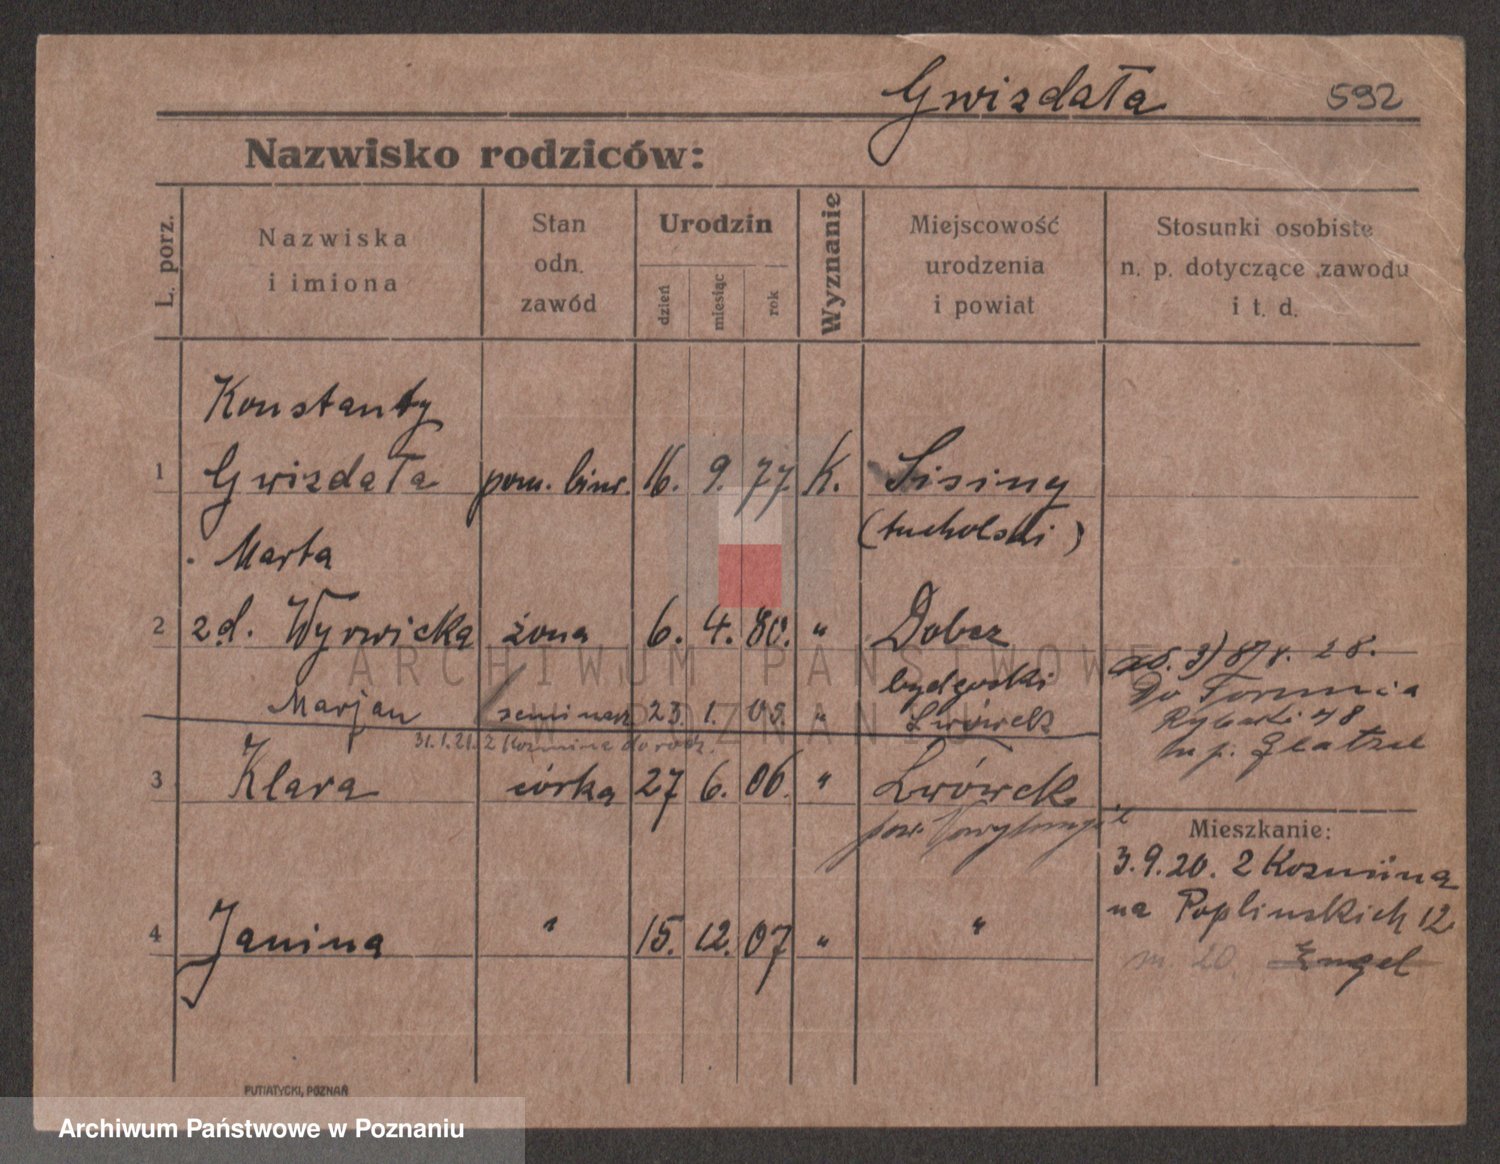 Gwizdała 592
Nazwisko rodziców:
L. porz.
Nazwiska
i imiona
Stan
odn.
zawód
Urodzin
dzień
miesiąc
rok
Wyznanie
Miejscowość
urodzenia
i powiat
Stosunki osobiste
n. p. dotyczące zawodu
i t. d.
Konstanty
1 Gwizdała pom. biur. 16. 9. 77 K. Lisiny
(tucholski)
Marta
2 zd. Wyrwicka żona 6. 4. 80. „ Dobcz
bydgoski
28.
Do Torunia
48
Marjan seminarz 23. 1. 05. „ Lwówek
31.1.21. z Koźmina do rodz.
3 Klara córka 27 6. 06. „ Lwówek
pow.
Mieszkanie:
3.9.20. z Koźmina
na Poplinskich 12.
4 Janina „ 15. 12. 07 „ „
m. 20. Engel
PUTIATYCKI, POZNAŃ
ARCHIWUM PAŃSTWOWE
W POZNANIU
Archiwum Państwowe w Poznaniu